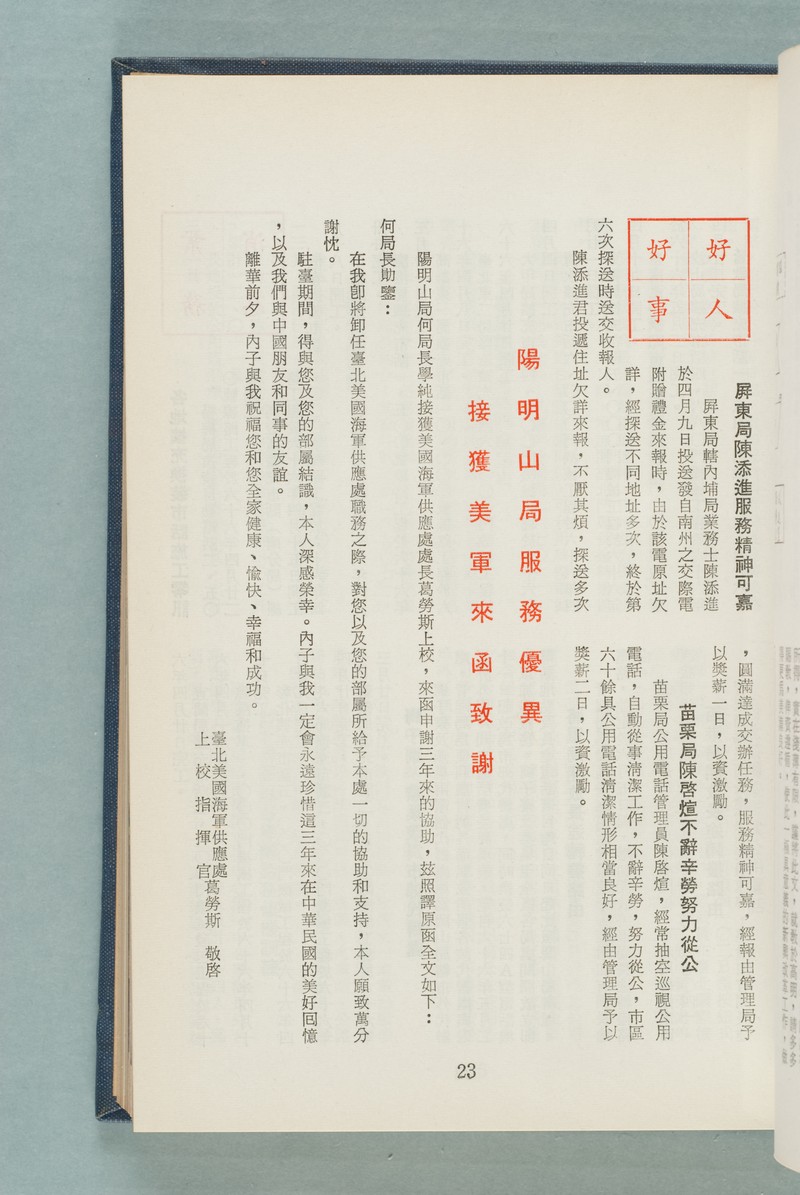 好人
好事
屏東局陳添進服務精神可嘉
屏東局轄內埔局業務士陳添進
於四月九日投送發自南州之交際電
附贈禮金來報時，由於該電原址欠
詳，經探送不同地址多次，終於第
六次探送時送交收報人。
陳添進君投遞住址欠詳來報，不厭其煩，探送多次
，圓滿達成交辦任務，服務精神可嘉，經報由管理局予
以獎薪一日，以資激勵。
苗栗局陳啓煊不辭辛勞努力從公
苗栗局公用電話管理員陳啓煊，經常抽空巡視公用
電話，自動從事清潔工作，不辭辛勞，努力從公，市區
六十餘具公用電話清潔情形相當良好，經由管理局予以
獎薪二日，以資激勵。
陽明山局服務優異
接獲美軍來函致謝
陽明山局何局長學純接獲美國海軍供應處處長葛勞斯上校，來函申謝三年來的協助，茲照譯原函全文如下：
何局長勛鑒：
在我卽將卸任臺北美國海軍供應處職務之際，對您以及您的部屬所給予本處一切的協助和支持，本人願致萬分
謝忱。
駐臺期間，得與您及您的部屬結識，本人深感榮幸。內子與我一定會永遠珍惜這三年來在中華民國的美好回憶
，以及我們與中國朋友和同事的友誼。
離華前夕，內子與我祝福您和您全家健康、愉快、幸福和成功。
臺北美國海軍供應處
上校指揮官葛勞斯　敬啓
23